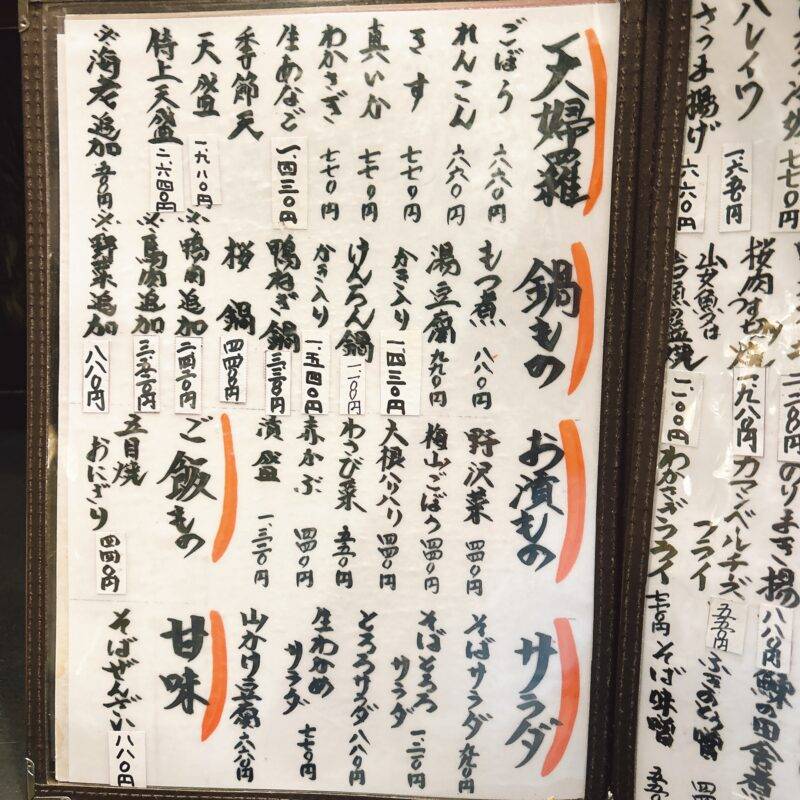 天婦羅
ごぼう 六六〇円
れんこん 六六〇円
きす 七七〇円
真いか 七七〇円
わかさぎ 七七〇円
生あなご 一、四三〇円
季節天
天盛 一、九八〇円
特上天盛 二、六四〇円
※海老追加
鍋もの
もつ煮 八八〇円
湯豆腐 九九〇円
かき入り 一、四三〇円
けんちん鍋
かき入り 一、五四〇円
鴨ねぎ鍋
桜鍋
※鴨肉追加
※馬肉追加
※野菜追加 八八〇円
お漬もの
野沢菜 四四〇円
梅山ごぼう 四四〇円
大根パリパリ 四四〇円
わさび菜 五五〇円
赤かぶ 四四〇円
漬盛 一、三二〇円
ご飯もの
五目焼
おにぎり 四四〇円
サラダ
そばサラダ 九九〇円
そばとろろ
サラダ 一、二一〇円
とろろサラダ 八八〇円
生わかめ
サラダ 七七〇円
山かけ豆腐 六六〇円
甘味
そばぜんざい 八八〇円
七七〇円
ハレイワ
さつま揚げ 六六〇円
のりまき揚 八八〇円
桜肉つすせ
カマンベルチーズ
フライ 五五〇円
わかさぎフライ 七七〇円
鰊の田舎煮
そば味噌